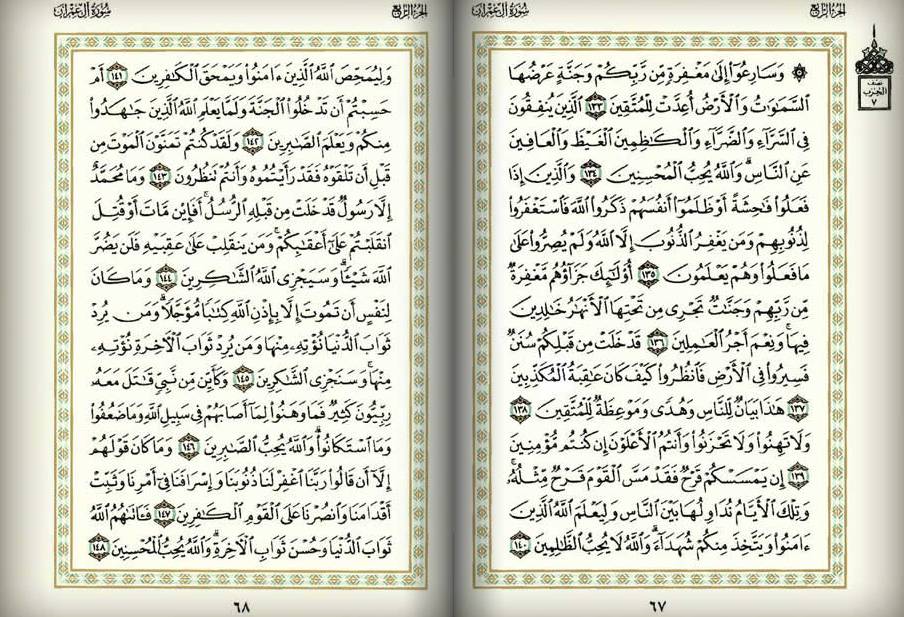 سُورَةُ آلِ عِمْرَانَ
الجُزْءُ الرَّابِعُ
۞ وَسَارِعُوٓا۟ إِلَىٰ مَغْفِرَةٍ مِّن رَّبِّكُمْ وَجَنَّةٍ عَرْضُهَا
ٱلسَّمَٰوَٰتُ وَٱلْأَرْضُ أُعِدَّتْ لِلْمُتَّقِينَ ١٣٣ ٱلَّذِينَ يُنفِقُونَ
فِى ٱلسَّرَّآءِ وَٱلضَّرَّآءِ وَٱلْكَٰظِمِينَ ٱلْغَيْظَ وَٱلْعَافِينَ
عَنِ ٱلنَّاسِ ۗ وَٱللَّهُ يُحِبُّ ٱلْمُحْسِنِينَ ١٣٤ وَٱلَّذِينَ إِذَا
فَعَلُوا۟ فَٰحِشَةً أَوْ ظَلَمُوٓا۟ أَنفُسَهُمْ ذَكَرُوا۟ ٱللَّهَ فَٱسْتَغْفَرُوا۟
لِذُنُوبِهِمْ وَمَن يَغْفِرُ ٱلذُّنُوبَ إِلَّا ٱللَّهُ وَلَمْ يُصِرُّوا۟ عَلَىٰ
مَا فَعَلُوا۟ وَهُمْ يَعْلَمُونَ ١٣٥ أُو۟لَٰٓئِكَ جَزَآؤُهُم مَّغْفِرَةٌ
مِّن رَّبِّهِمْ وَجَنَّٰتٌ تَجْرِى مِن تَحْتِهَا ٱلْأَنْهَٰرُ خَٰلِدِينَ
فِيهَا ۚ وَنِعْمَ أَجْرُ ٱلْعَٰمِلِينَ ١٣٦ قَدْ خَلَتْ مِن قَبْلِكُمْ سُنَنٌ
فَسِيرُوا۟ فِى ٱلْأَرْضِ فَٱنظُرُوا۟ كَيْفَ كَانَ عَٰقِبَةُ ٱلْمُكَذِّبِينَ
١٣٧ هَٰذَا بَيَانٌ لِّلنَّاسِ وَهُدًى وَمَوْعِظَةٌ لِّلْمُتَّقِينَ ١٣٨
وَلَا تَهِنُوا۟ وَلَا تَحْزَنُوا۟ وَأَنتُمُ ٱلْأَعْلَوْنَ إِن كُنتُم مُّؤْمِنِينَ
١٣٩ إِن يَمْسَسْكُمْ قَرْحٌ فَقَدْ مَسَّ ٱلْقَوْمَ قَرْحٌ مِّثْلُهُۥ ۚ
وَتِلْكَ ٱلْأَيَّامُ نُدَاوِلُهَا بَيْنَ ٱلنَّاسِ وَلِيَعْلَمَ ٱللَّهُ ٱلَّذِينَ
ءَامَنُوا۟ وَيَتَّخِذَ مِنكُمْ شُهَدَآءَ ۗ وَٱللَّهُ لَا يُحِبُّ ٱلظَّٰلِمِينَ ١٤٠
نصف
الحزب
٧
٦٧
سُورَةُ آلِ عِمْرَانَ
الجُزْءُ الرَّابِعُ
وَلِيُمَحِّصَ ٱللَّهُ ٱلَّذِينَ ءَامَنُوا۟ وَيَمْحَقَ ٱلْكَٰفِرِينَ ١٤١ أَمْ
حَسِبْتُمْ أَن تَدْخُلُوا۟ ٱلْجَنَّةَ وَلَمَّا يَعْلَمِ ٱللَّهُ ٱلَّذِينَ جَٰهَدُوا۟
مِنكُمْ وَيَعْلَمَ ٱلصَّٰبِرِينَ ١٤٢ وَلَقَدْ كُنتُمْ تَمَنَّوْنَ ٱلْمَوْتَ مِن
قَبْلِ أَن تَلْقَوْهُ فَقَدْ رَأَيْتُمُوهُ وَأَنتُمْ تَنظُرُونَ ١٤٣ وَمَا مُحَمَّدٌ
إِلَّا رَسُولٌ قَدْ خَلَتْ مِن قَبْلِهِ ٱلرُّسُلُ ۚ أَفَإِي۟ن مَّاتَ أَوْ قُتِلَ
ٱنقَلَبْتُمْ عَلَىٰٓ أَعْقَٰبِكُمْ ۚ وَمَن يَنقَلِبْ عَلَىٰ عَقِبَيْهِ فَلَن يَضُرَّ
ٱللَّهَ شَيْـًٔا ۗ وَسَيَجْزِى ٱللَّهُ ٱلشَّٰكِرِينَ ١٤٤ وَمَا كَانَ
لِنَفْسٍ أَن تَمُوتَ إِلَّا بِإِذْنِ ٱللَّهِ كِتَٰبًا مُّؤَجَّلًا ۗ وَمَن يُرِدْ
ثَوَابَ ٱلدُّنْيَا نُؤْتِهِۦ مِنْهَا وَمَن يُرِدْ ثَوَابَ ٱلْءَاخِرَةِ نُؤْتِهِۦ
مِنْهَا ۚ وَسَنَجْزِى ٱلشَّٰكِرِينَ ١٤٥ وَكَأَيِّن مِّن نَّبِىٍّ قَٰتَلَ مَعَهُۥ
رِبِّيُّونَ كَثِيرٌ فَمَا وَهَنُوا۟ لِمَآ أَصَابَهُمْ فِى سَبِيلِ ٱللَّهِ وَمَا ضَعُفُوا۟
وَمَا ٱسْتَكَانُوا۟ ۗ وَٱللَّهُ يُحِبُّ ٱلصَّٰبِرِينَ ١٤٦ وَمَا كَانَ قَوْلَهُمْ
إِلَّآ أَن قَالُوا۟ رَبَّنَا ٱغْفِرْ لَنَا ذُنُوبَنَا وَإِسْرَافَنَا فِىٓ أَمْرِنَا وَثَبِّتْ
أَقْدَامَنَا وَٱنصُرْنَا عَلَى ٱلْقَوْمِ ٱلْكَٰفِرِينَ ١٤٧ فَـَٔاتَىٰهُمُ ٱللَّهُ
ثَوَابَ ٱلدُّنْيَا وَحُسْنَ ثَوَابِ ٱلْءَاخِرَةِ ۗ وَٱللَّهُ يُحِبُّ ٱلْمُحْسِنِينَ ١٤٨
٦٨